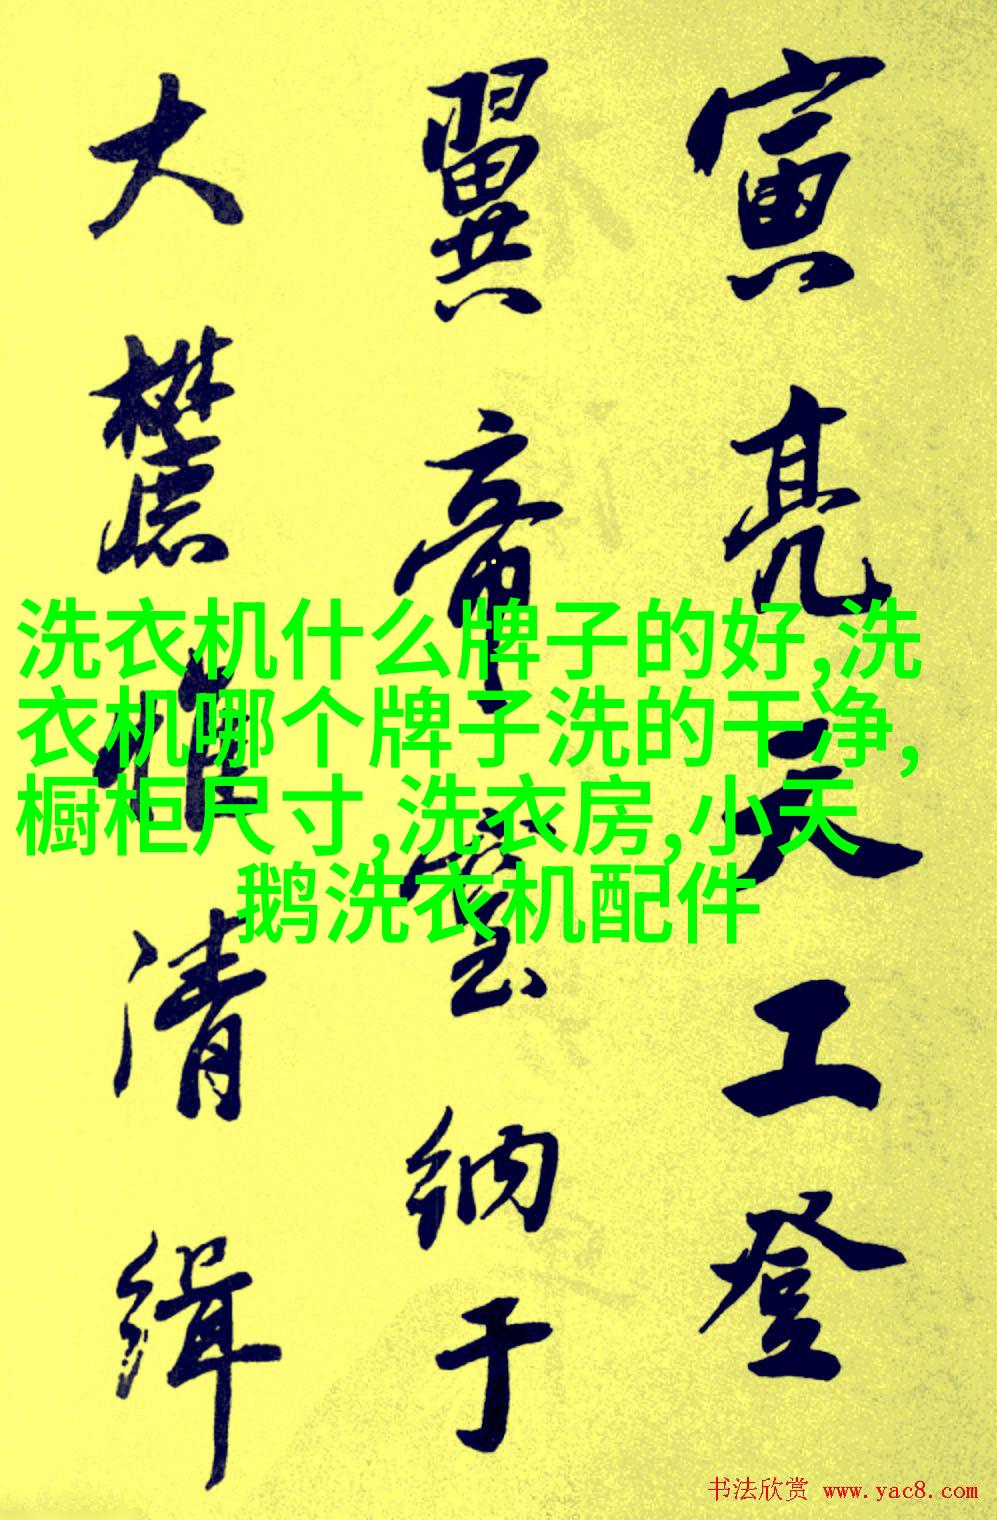 寅亮天工登
翼帝室纳于
大麓惟清缉
洗衣机什么牌子的好,洗
衣机哪个牌子洗的干净,
橱柜尺寸,洗衣房,小天
鹅洗衣机配件
书法欣赏 www.yac8.com